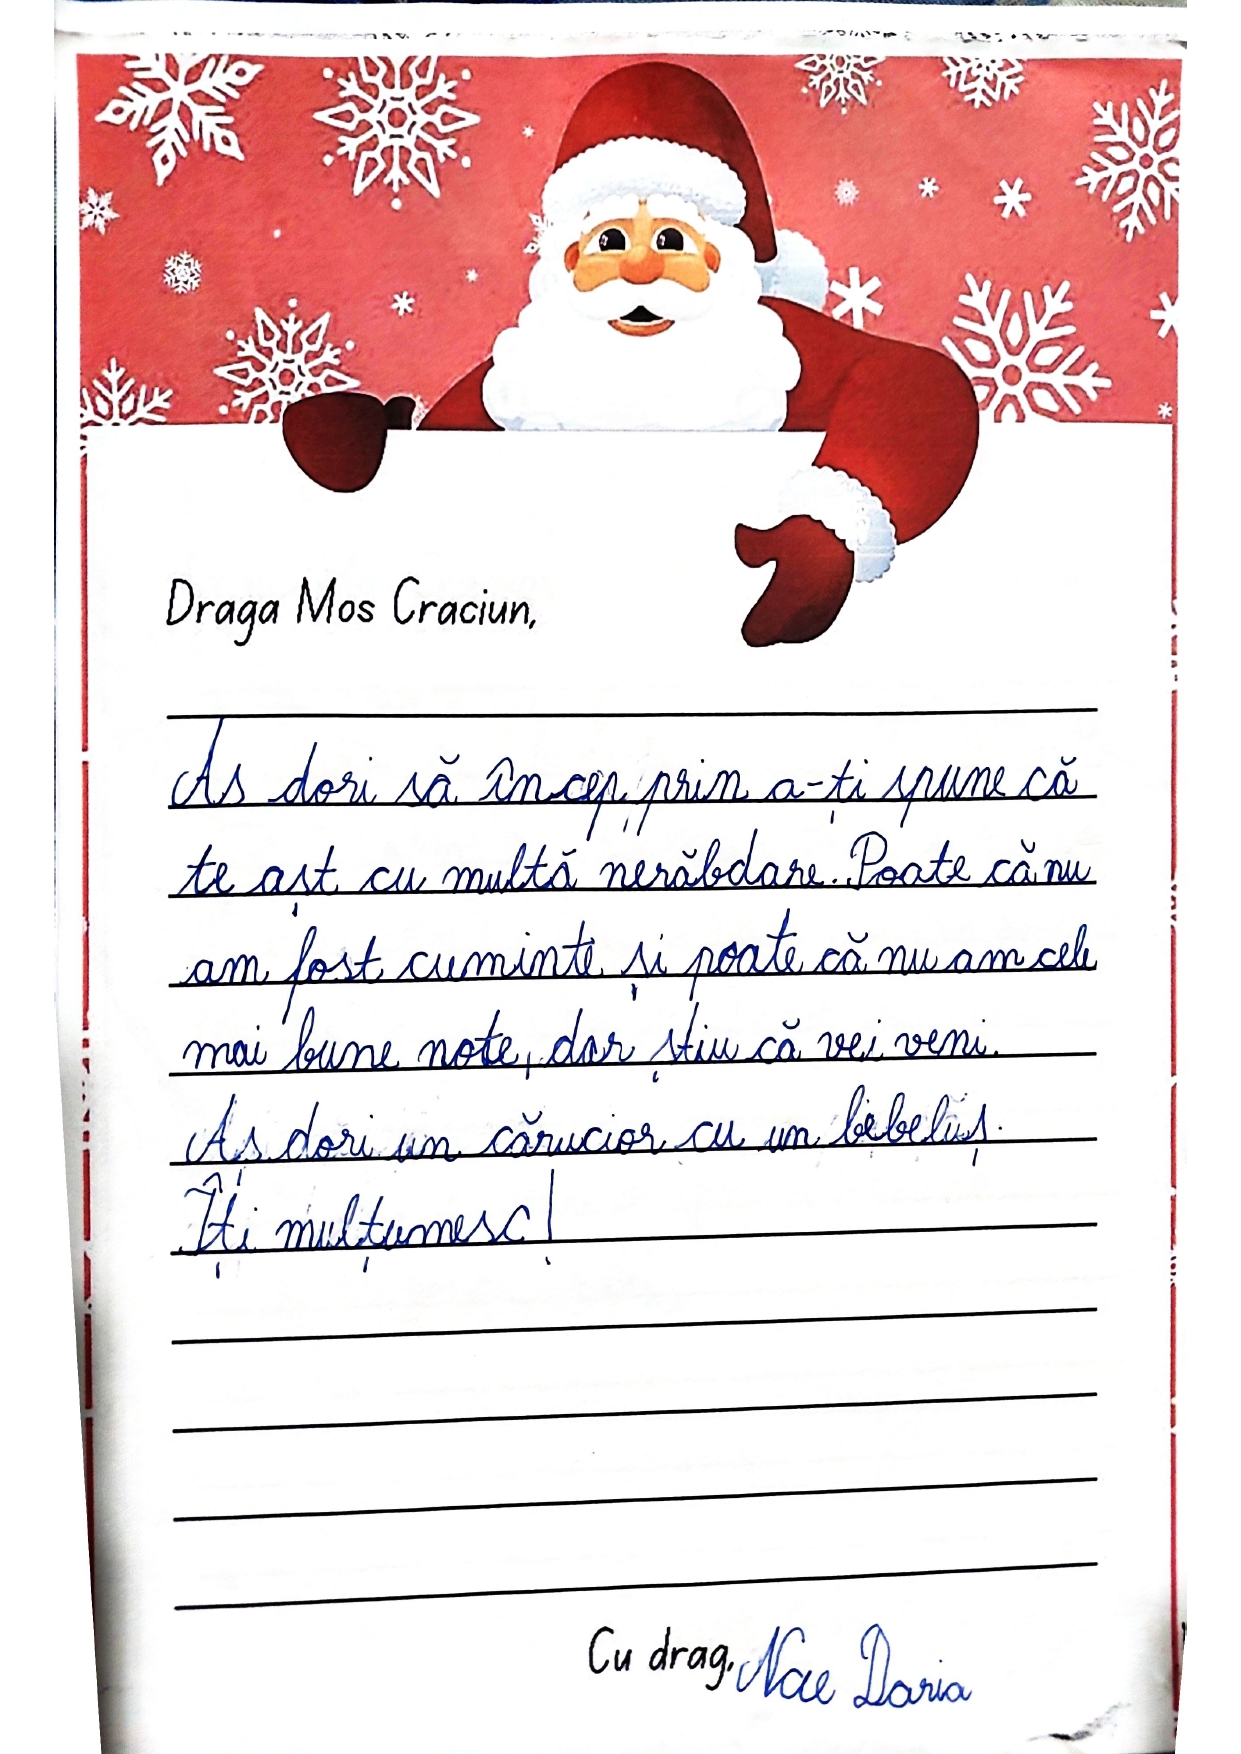 Draga Mos Craciun,
As dori să încep, prin a-ți spune că
te așt cu multă nerăbdare. Poate că nu
am fost cuminte și poate că nu am cele
mai bune note, dar știu că vei veni.
Aș dori un cărucior cu un bebeluș.
Îți mulțumesc!
Cu drag, Nae Daria